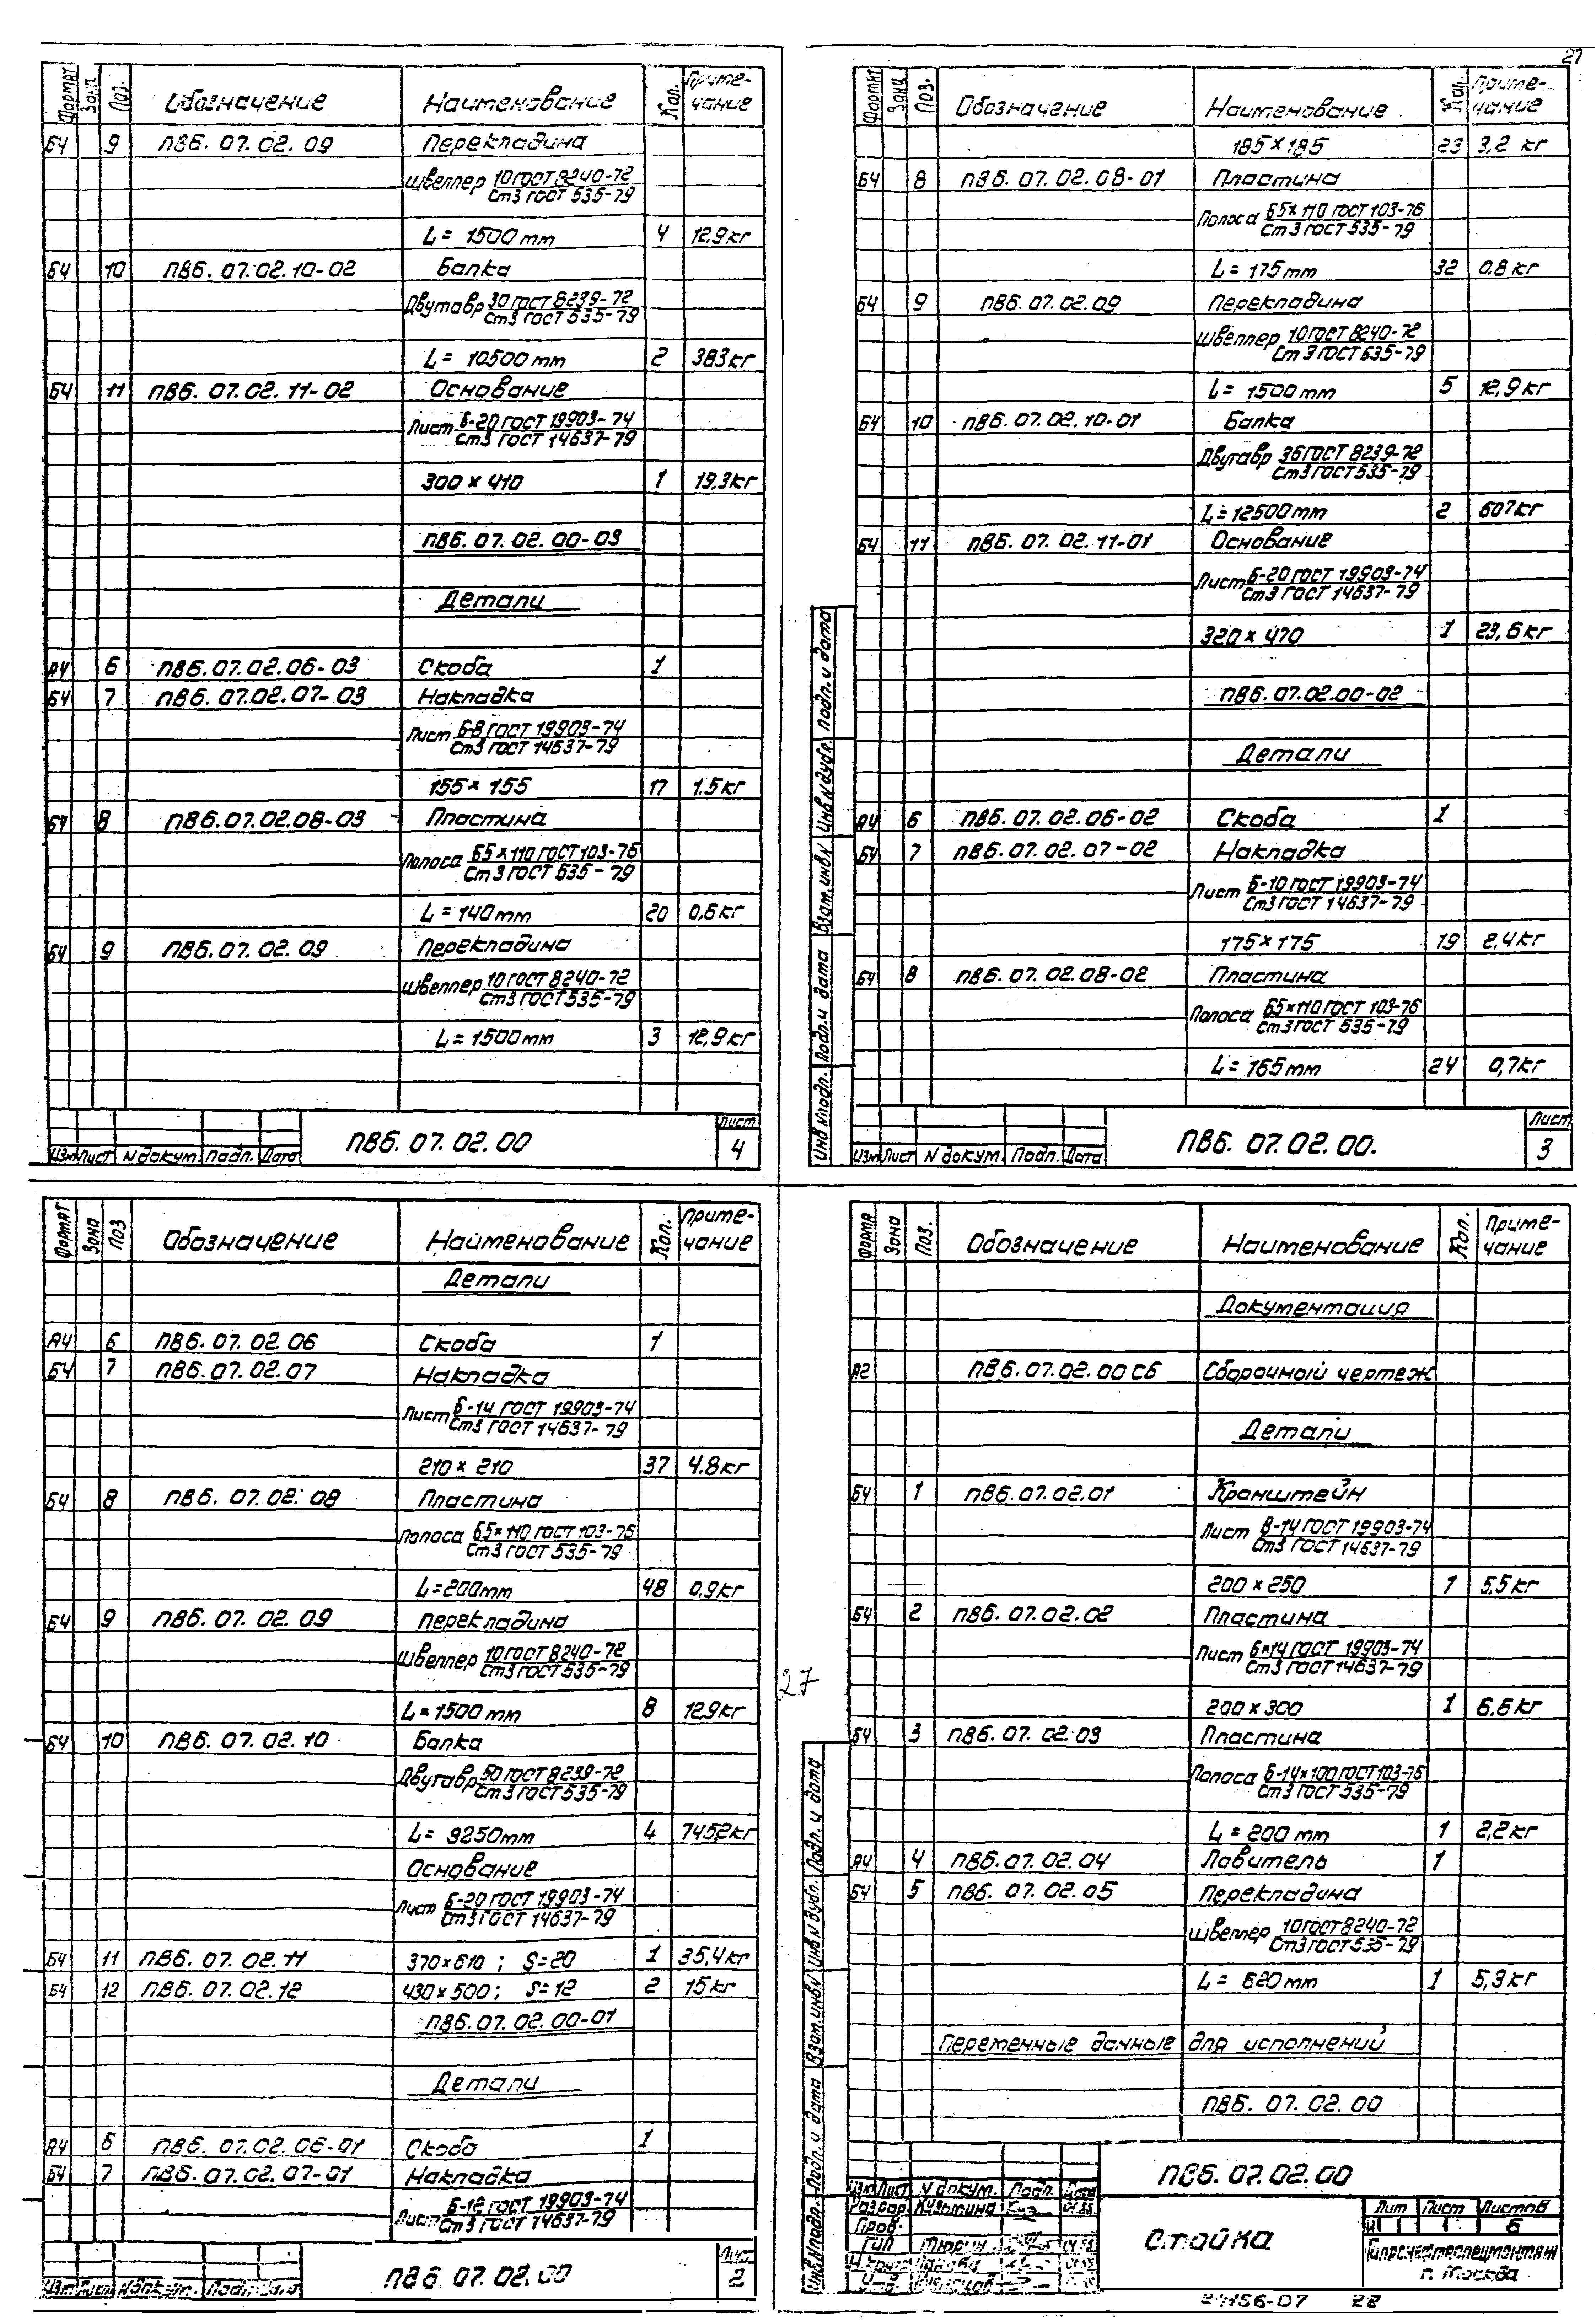 27
Формат Зона Поз. Обозначение Наименование Кол. Приме-чание
БЧ 9 ПВ6. 07. 02. 09 Перекладина
Швеллер 10 ГОСТ 8240-72
Ст3 ГОСТ 535-79
L = 1500 mm 4 12,9 кг
БЧ 10 ПВ6. 07. 02. 10-02 Балка
Двутавр 30 ГОСТ 8239-72
Ст3 ГОСТ 535-79
L = 10500 mm 2 383 кг
БЧ 11 ПВ6. 07. 02. 11-02 Основание
Лист Б-20 ГОСТ 19903-74
Ст3 ГОСТ 14637-79
300 × 410 1 19,3 кг
ПВ6. 07. 02. 00-03
Детали
А4 6 ПВ6. 07. 02. 06-03 Скоба 1
БЧ 7 ПВ6. 07. 02. 07-03 Накладка
Лист Б-8 ГОСТ 19903-74
Ст3 ГОСТ 14637-79
155 × 155 17 1,5 кг
БЧ 8 ПВ6. 07. 02. 08-03 Пластина
Полоса Б5×110 ГОСТ 103-76
Ст3 ГОСТ 535-79
L = 140 mm 20 0,6 кг
БЧ 9 ПВ6. 07. 02. 09 Перекладина
Швеллер 10 ГОСТ 8240-72
Ст3 ГОСТ 535-79
L = 1500 mm 3 12,9 кг
Изм Лист N докум. Подп. Дата ПВ6. 07. 02. 00 Лист 4
Формат Зона Поз. Обозначение Наименование Кол. Приме-чание
185 × 185 23 3,2 кг
БЧ 8 ПВ6. 07. 02. 08-01 Пластина
Полоса Б5×110 ГОСТ 103-76
Ст3 ГОСТ 535-79
L = 175 mm 32 0,8 кг
БЧ 9 ПВ6. 07. 02. 09 Перекладина
Швеллер 10 ГОСТ 8240-72
Ст3 ГОСТ 535-79
L = 1500 mm 5 12,9 кг
БЧ 10 ПВ6. 07. 02. 10-01 Балка
Двутавр 36 ГОСТ 8239-72
Ст3 ГОСТ 535-79
L = 12500 mm 2 607 кг
БЧ 11 ПВ6. 07. 02. 11-01 Основание
Лист Б-20 ГОСТ 19903-74
Ст3 ГОСТ 14637-79
320 × 470 1 23,6 кг
ПВ6. 07. 02. 00-02
Детали
А4 6 ПВ6. 07. 02. 06-02 Скоба 1
БЧ 7 ПВ6. 07. 02. 07-02 Накладка
Лист Б-10 ГОСТ 19903-74
Ст3 ГОСТ 14637-79
175 × 175 19 2,4 кг
БЧ 8 ПВ6. 07. 02. 08-02 Пластина
Полоса Б5×110 ГОСТ 103-76
Ст3 ГОСТ 535-79
L = 165 mm 24 0,7 кг
Инв N подл. Подп. и дата Взам. инв N Инв N дубл. Подп. и дата
Изм Лист N докум. Подп. Дата ПВ6. 07. 02. 00. Лист 3
Формат Зона Поз Обозначение Наименование Кол. Приме-чание
Детали
А4 6 ПВ6. 07. 02. 06 Скоба 1
БЧ 7 ПВ6. 07. 02. 07 Накладка
Лист Б-14 ГОСТ 19903-74
Ст3 ГОСТ 14637-79
210 × 210 37 4,8 кг
БЧ 8 ПВ6. 07. 02. 08 Пластина
Полоса Б5×110 ГОСТ 103-76
Ст3 ГОСТ 535-79
L = 200 mm 48 0,9 кг
БЧ 9 ПВ6. 07. 02. 09 Перекладина
Швеллер 10 ГОСТ 8240-72
Ст3 ГОСТ 535-79
L = 1500 mm 8 12,9 кг
БЧ 10 ПВ6. 07. 02. 10 Балка
Двутавр 50 ГОСТ 8239-72
Ст3 ГОСТ 535-79
L = 9250 mm 4 745,2 кг
Основание
Лист Б-20 ГОСТ 19903-74
Ст3 ГОСТ 14637-79
БЧ 11 ПВ6. 07. 02. 11 370×610 ; S=20 1 35,4 кг
БЧ 12 ПВ6. 07. 02. 12 430×500 ; S=12 2 15 кг
ПВ6. 07. 02. 00-01
Детали
А4 6 ПВ6. 07. 02. 06-01 Скоба 1
БЧ 7 ПВ6. 07. 02. 07-01 Накладка
Лист Б-12 ГОСТ 19903-74
Ст3 ГОСТ 14637-79
Изм Лист N докум. Подп. Дата ПВ6. 07. 02. 00 Лист 2
27
Формат Зона Поз. Обозначение Наименование Кол. Приме-чание
Документация
А2 ПВ6. 07. 02. 00 СБ Сборочный чертеж
Детали
БЧ 1 ПВ6. 07. 02. 01 Кронштейн
Лист В-14 ГОСТ 19903-74
Ст3 ГОСТ 14637-79
200 × 250 1 5,5 кг
БЧ 2 ПВ6. 07. 02. 02 Пластина
Лист Б×14 ГОСТ 19903-74
Ст3 ГОСТ 14637-79
200 × 300 1 6,6 кг
БЧ 3 ПВ6. 07. 02. 03 Пластина
Полоса Б-14×100 ГОСТ 103-76
Ст3 ГОСТ 535-79
L = 200 mm 1 2,2 кг
А4 4 ПВ6. 07. 02. 04 Ловитель 1
БЧ 5 ПВ6. 07. 02. 05 Перекладина
Швеллер 10 ГОСТ 8240-72
Ст3 ГОСТ 535-79
L = 620 mm 1 5,3 кг
Переменные данные для исполнений
ПВ6. 07. 02. 00
Инв N подл. Подп. и дата Взам. инв N Инв N дубл. Подп. и дата
ПВ6. 07. 02. 00
Изм Лист N докум. Подп. Дата
Разраб. Кузьмина
Пров.
ГИП Тюрин
Стойка
Лит Лист Листов
И 1 6
Гипронефтеспецмонтаж
г. Москва
22